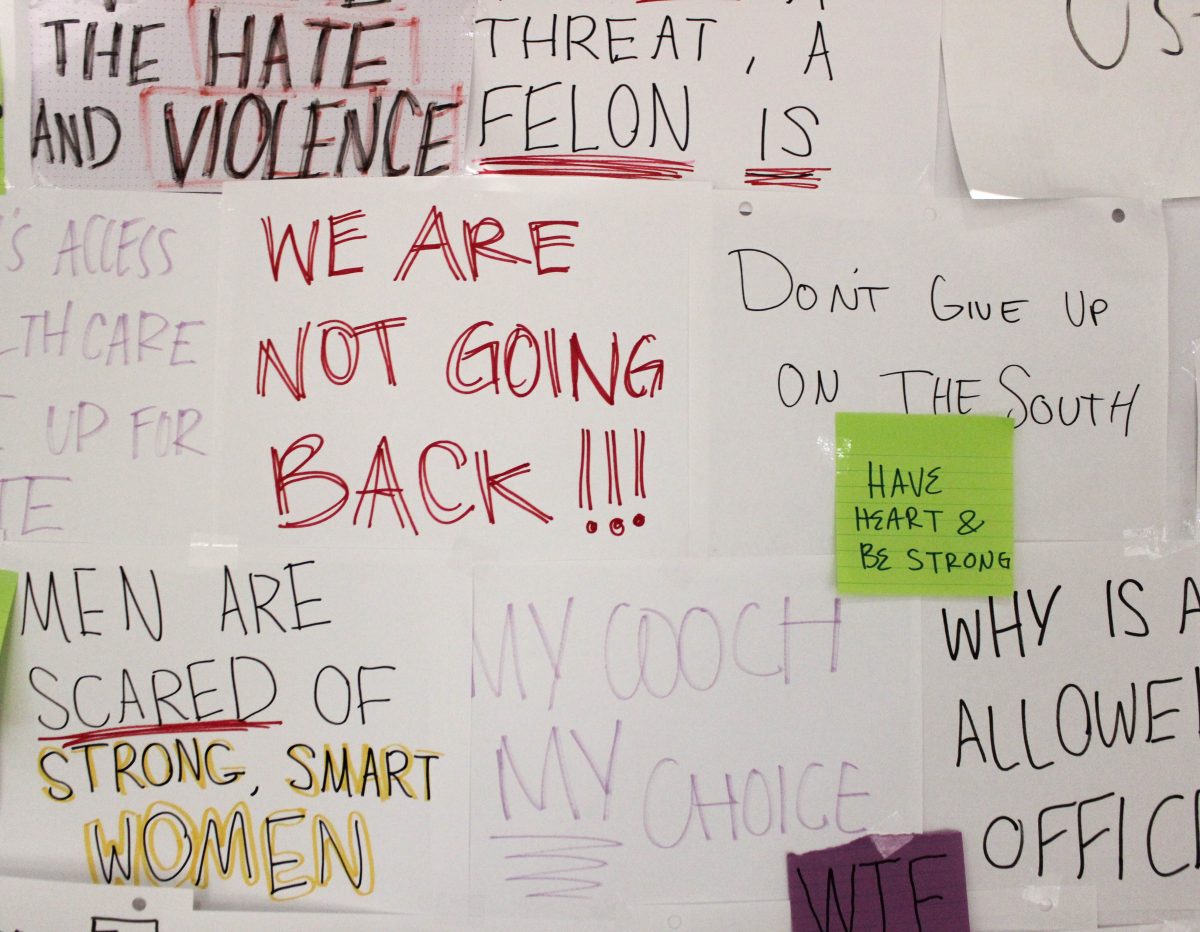 THE HATE
AND VIOLENCE
THREAT, A
FELON IS
'S ACCESS
LTHCARE
UP FOR
WE ARE
NOT GOING
BACK!!!
DON'T GIVE UP
ON THE SOUTH
HAVE
HEART &
BE STRONG
MEN ARE
SCARED OF
STRONG, SMART
WOMEN
MY COOCH
MY CHOICE
WHY IS A
ALLOWE
OFFIC
WTF